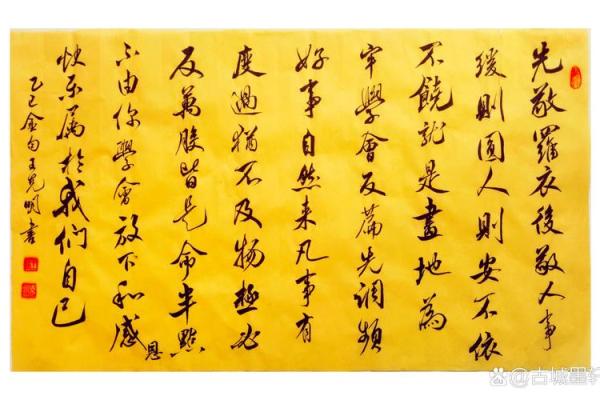 先敬羅衣後敬人事
緩則圓人則安不依
不饒就是畫地為
牢學會反篇先調頻
好事自然来凡事有
度過猶不及物極必
反萬般皆是命半點
不由你學會放下和感恩
快乐屬於我們自己
乙巳金句王明書
@古城墨轩